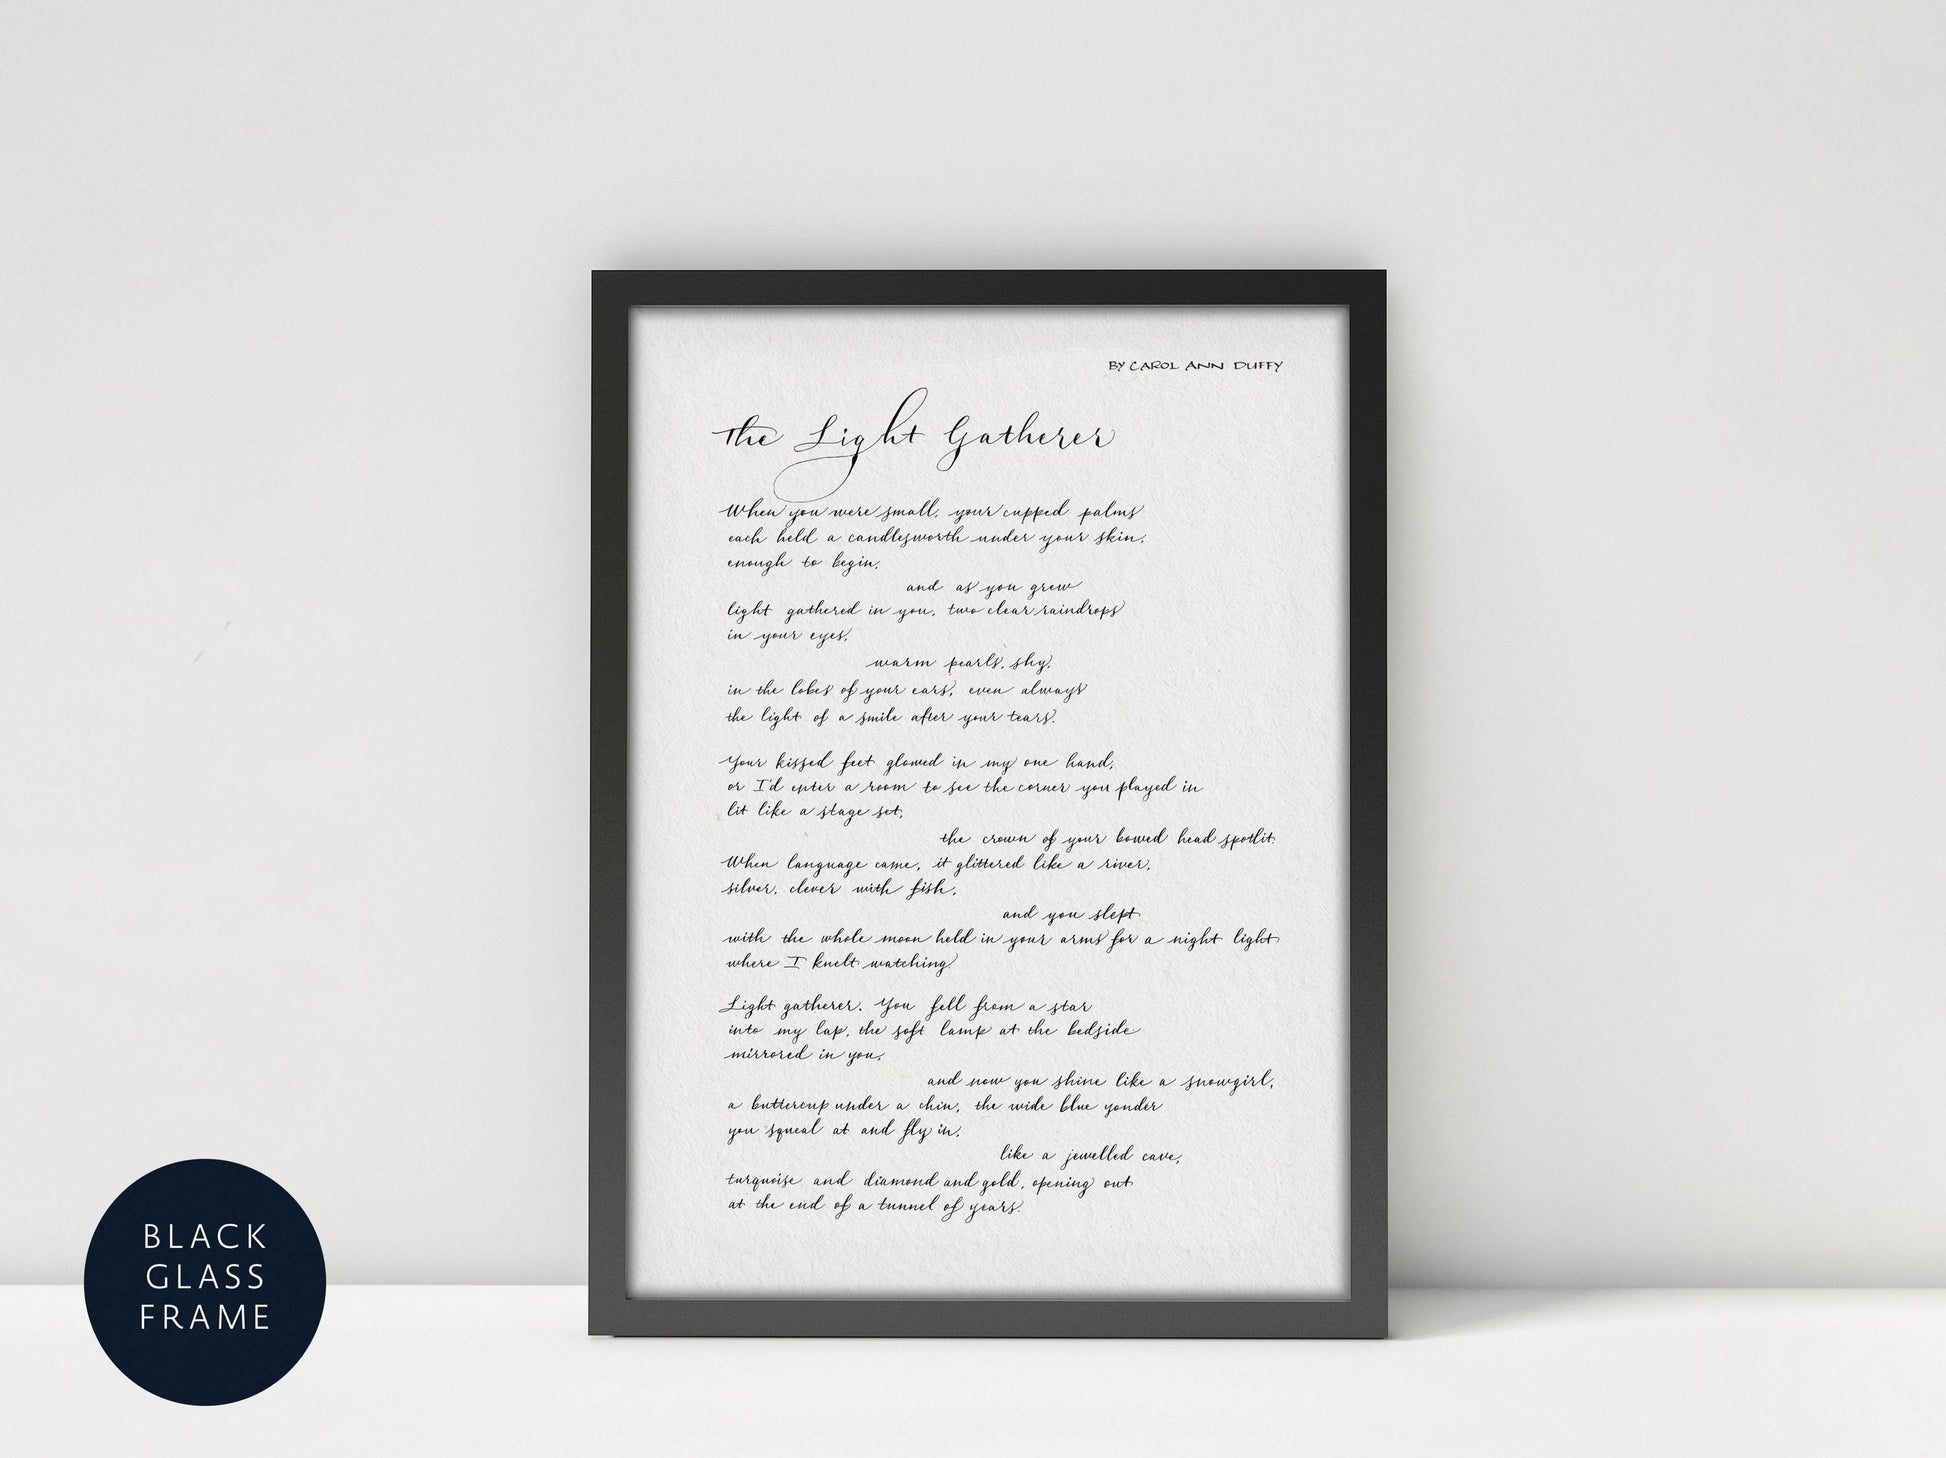 BY CAROL ANN DUFFY
The Light Gatherer
When you were small, your cupped palms
each held a candlesworth under your skin,
enough to begin,
and as you grew
light gathered in you, two clear raindrops
in your eyes,
warm pearls, shy,
in the lobes of your ears, even always
the light of a smile after your tears.
Your kissed feet glowed in my one hand,
or I'd enter a room to see the corner you played in
lit like a stage set,
the crown of your bowed head spotlit.
When language came, it glittered like a river,
silver, clever with fish,
and you slept
with the whole moon held in your arms for a night light
where I knelt watching.
Light gatherer. You fell from a star
into my lap, the soft lamp at the bedside
mirrored in you,
and now you shine like a snowgirl,
a buttercup under a chin, the wide blue yonder
you squeal at and fly in,
like a jewelled cave,
turquoise and diamond and gold, opening out
at the end of a tunnel of years.
BLACK
GLASS
FRAME